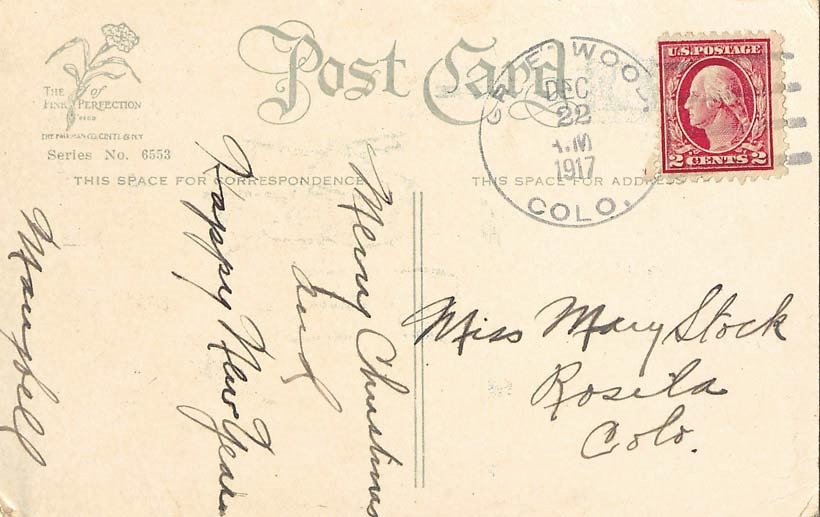 Post Card
THE of
PINK PERFECTION
THE FAIRMAN CO. CINTI. & N.Y.
Series No. 6553
THIS SPACE FOR CORRESPONDENCE
THIS SPACE FOR ADDRESS
DEC
22
A.M
1917
COLO.
U.S. POSTAGE
2 CENTS 2
Merry Christmas
and
Happy New Year
Miss Mary Stock
Rosita
Colo.